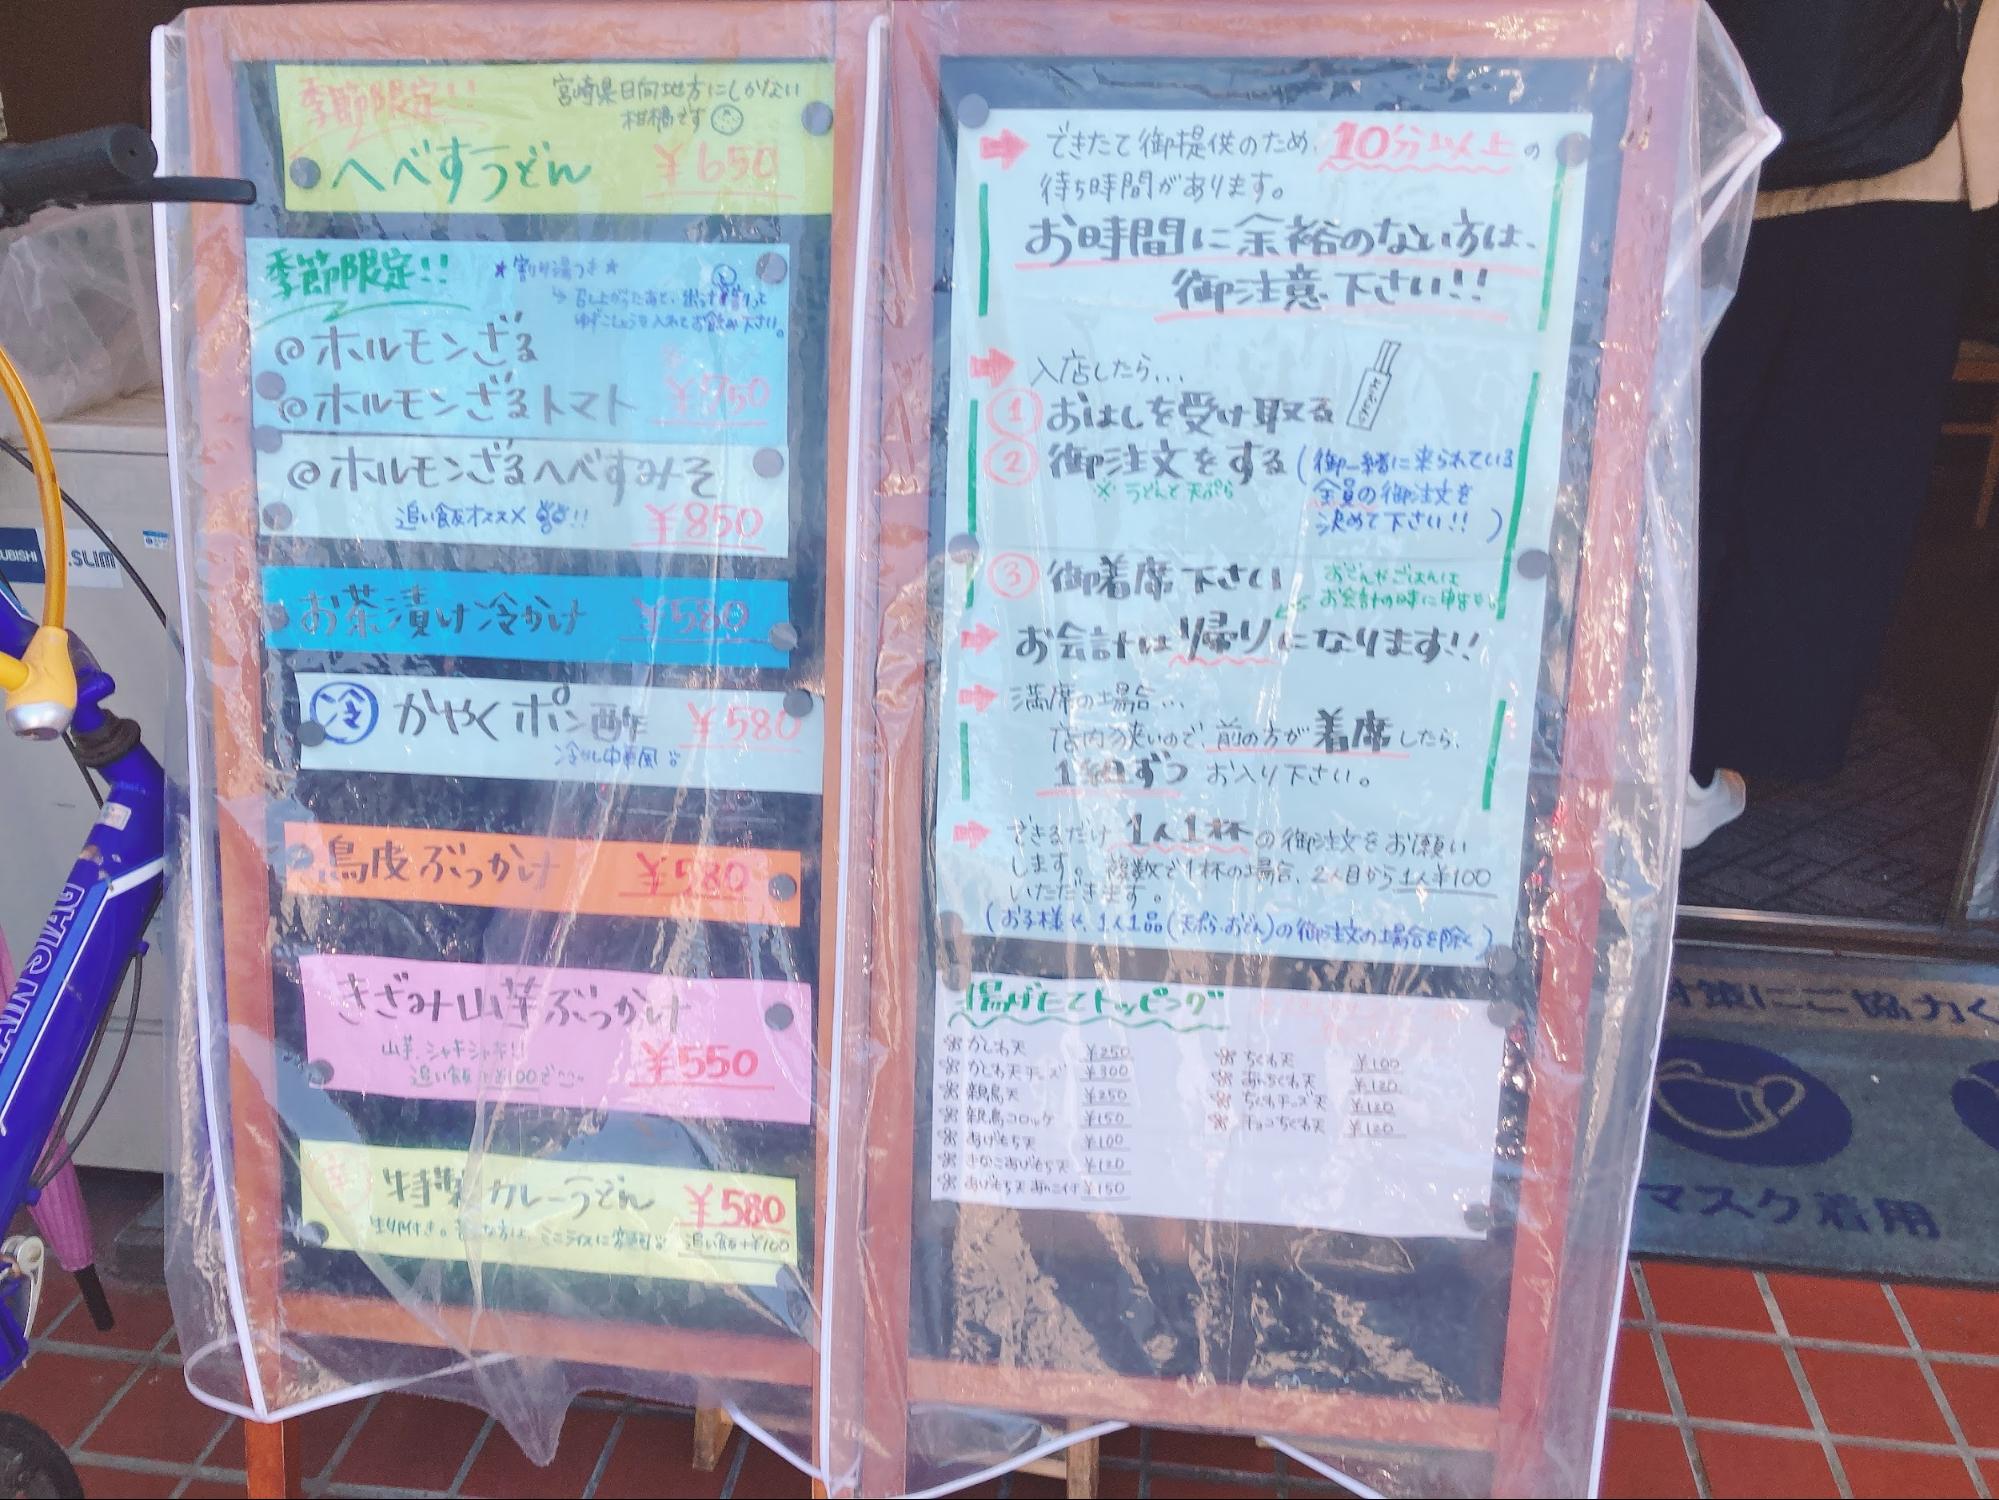 季節限定!!
宮崎県日向地方にしかない
柑橘です
へべすうどん ¥650
季節限定!!
★割り湯つき★
ゆずこしょうを入れてお飲み下さい。
@ホルモンざる
@ホルモンざるトマト ¥750
@ホルモンざるへべすみそ
追い飯オススメ!!
¥850
お茶漬け冷かけ ¥580
冷 かやくポン酢 ¥580
冷やし中華風
鳥皮ぶっかけ ¥580
きざみ山芋ぶっかけ
山芋、シャキシャキ!!
追い飯+¥100で
¥550
辛 特製カレーうどん ¥580
追い飯+¥100
できたて御提供のため、10分以上の
待ち時間があります。
お時間に余裕のない方は、
御注意下さい!!
入店したら...
① おはしを受け取る
② 御注文をする (御一緒に来られている
※うどんと天ぷら
全員の御注文を
決めて下さい!!)
③ 御着席下さい
おでんやごはんは
お会計の時に
お会計は帰りになります!!
満席の場合...
店内が狭いので、前の方が着席したら、
1組ずつ お入り下さい。
できるだけ 1人1杯の御注文をお願い
します。複数で1杯の場合、2人目から1人¥100
いただきます。
(お子様や、1人1品(天ぷら・おでん)の御注文の場合を除く)
揚げたてトッピング
かしわ天 ¥250
かしわ天チーズ ¥300
親鳥天 ¥250
親鳥コロッケ ¥150
あげもち天 ¥100
きなこあげもち天 ¥120
あげもち天あんこ付 ¥150
ちくわ天 ¥100
ちくわ天 ¥120
ちくわチーズ天 ¥120
チョコちくわ天 ¥120
.SLIM
にご協力く
マスク着用